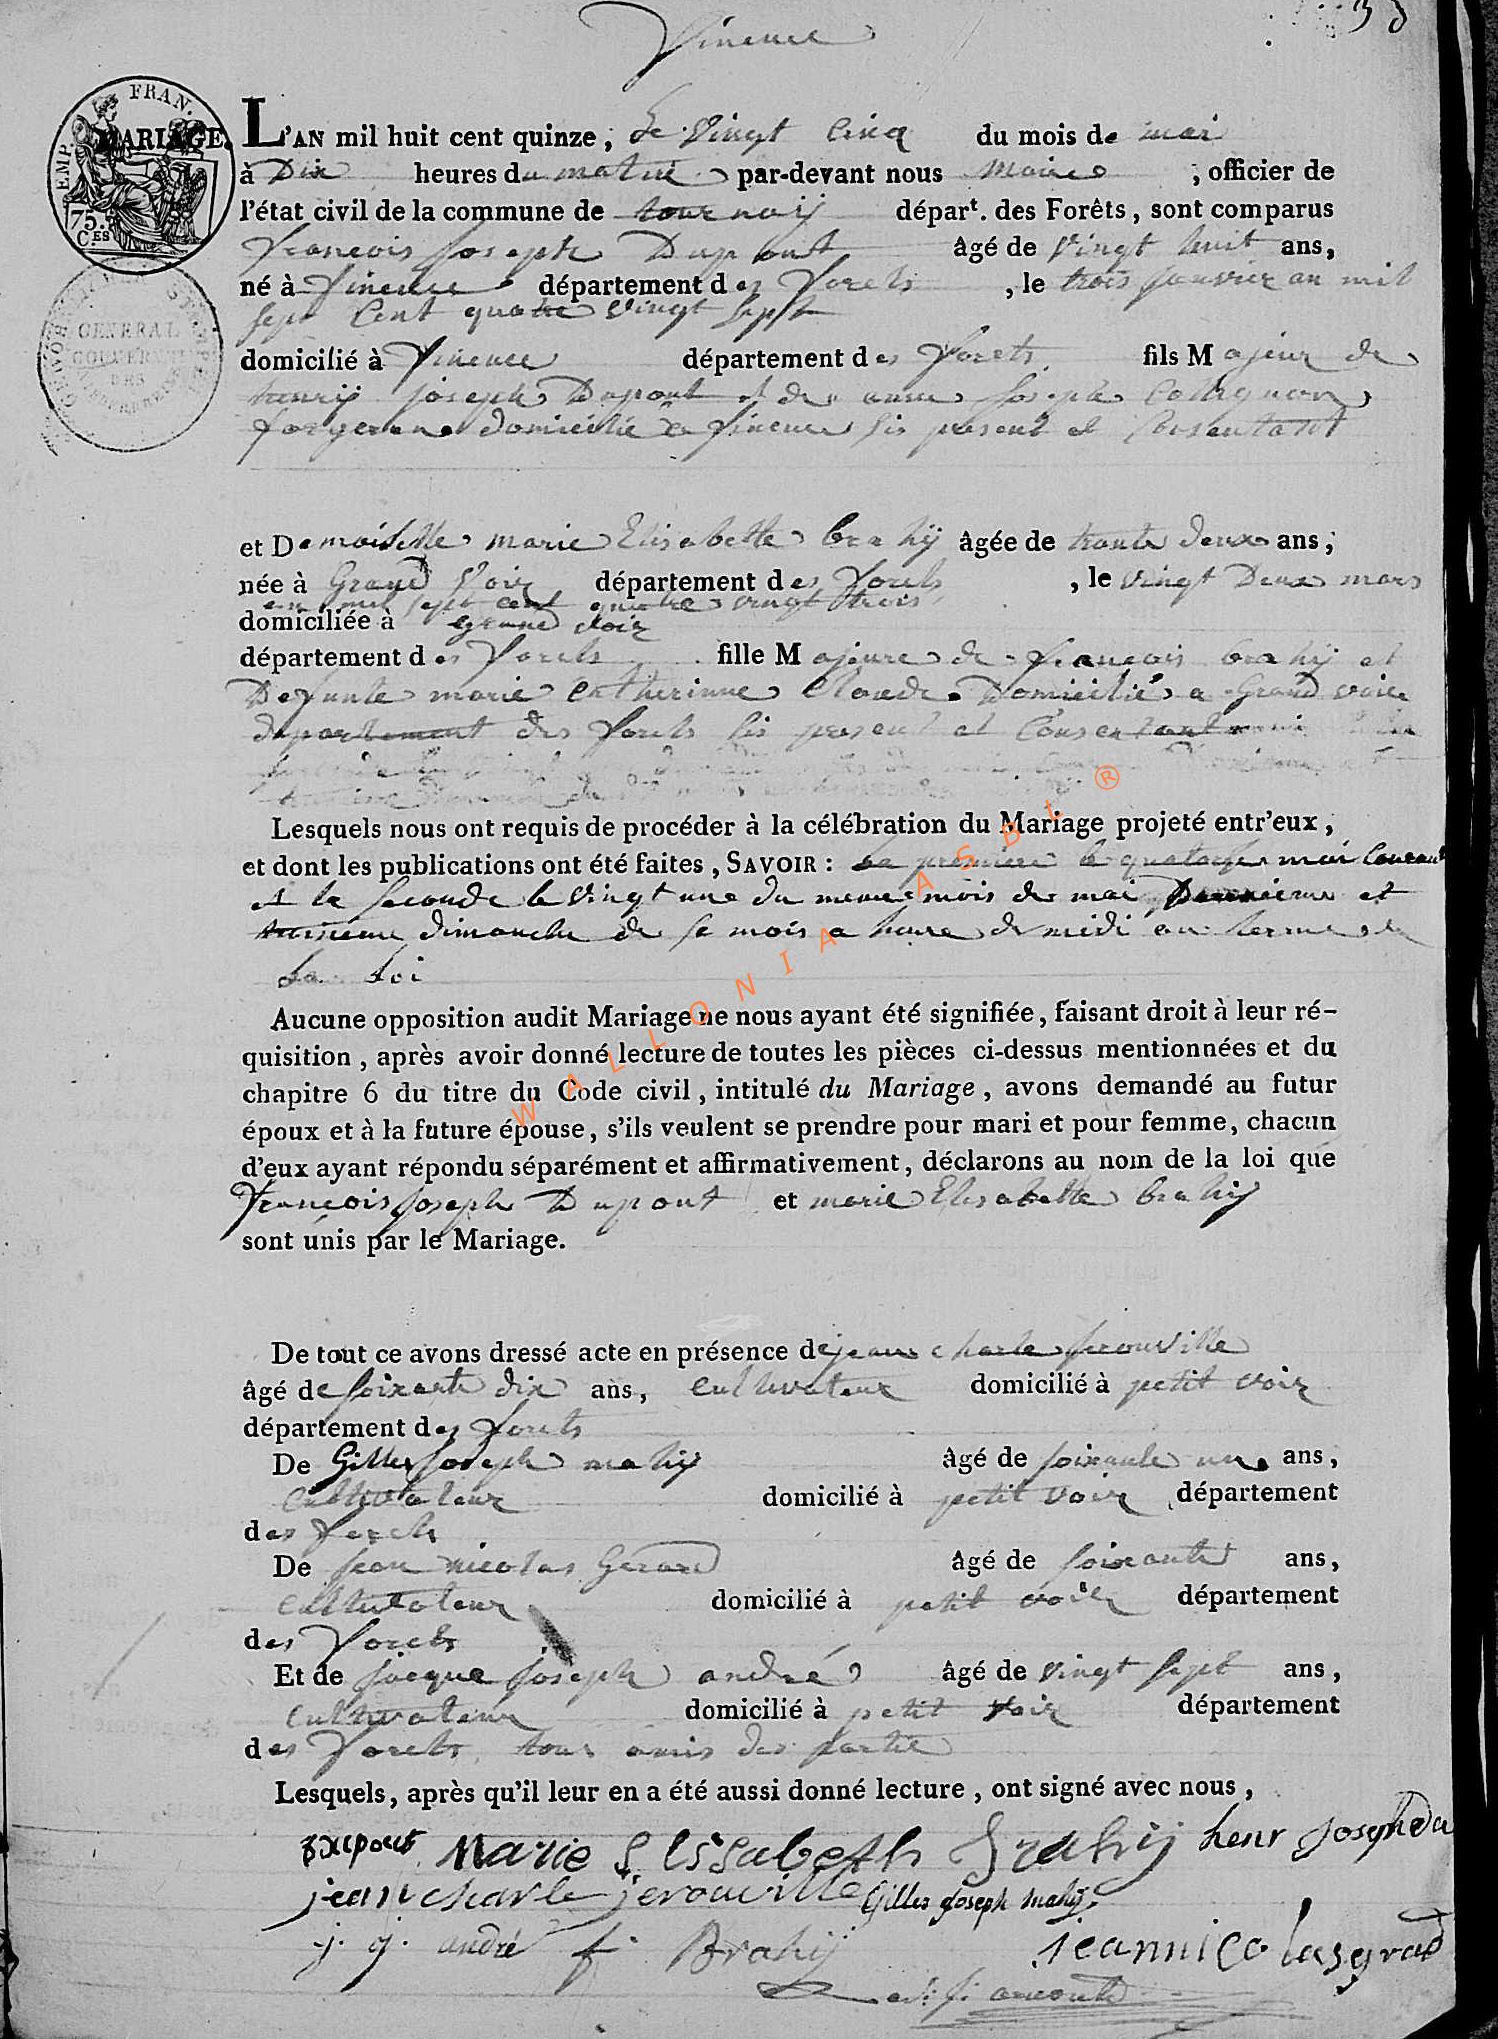 Vinence
38
EMP. FRAN.
75. CES
MARIAGE.
L'AN mil huit cent quinze, Le vingt Cinq du mois de mai
à Dix heures du matin par-devant nous maire, officier de
l'état civil de la commune de tournaÿ dépar^t. des Forêts, sont comparus
francois Joseph Dupont âgé de vingt huit ans,
né à Vinence département des Forets, le trois janvier an mil
sept Cent quatre vingt sept
GENERAL GOUVERN
domicilié à Vinence département des Forets fils Majeur de
henrÿ joseph Dupont et de anne Joseph Collignon
forgeron domicilié a Vinence Sis présent et Consentant
et Demoiselle marie Elisabette brahÿ âgée de trante deux ans,
née à Grand Voir département des Forets, le vingt Deux mars
an mil sept cent quatre vingt trois
domiciliée à grand voir
département des Forets fille Majeure de francois brahÿ et
Defunte marie Catherinne Claude Domicilié a Grand voir
departement des Forets Sis present et Consentant
Lesquels nous ont requis de procéder à la célébration du Mariage projeté entr'eux,
et dont les publications ont été faites, SAVOIR : La premiere le quatorze mai Courant
et la seconde le vingt une du meme mois de mai Deuxieme et
troisieme dimanche de se mois a heure de midi au terme de
La Loi
Aucune opposition audit Mariage ne nous ayant été signifiée, faisant droit à leur ré-
quisition, après avoir donné lecture de toutes les pièces ci-dessus mentionnées et du
chapitre 6 du titre du Code civil, intitulé du Mariage, avons demandé au futur
époux et à la future épouse, s'ils veulent se prendre pour mari et pour femme, chacun
d'eux ayant répondu séparément et affirmativement, déclarons au nom de la loi que
francois Joseph Dupont et marie Elisabette brahÿ
sont unis par le Mariage.
WALLONIA ASBL ®
De tout ce avons dressé acte en présence de jean charle jerouville
âgé de soixante dix ans, cultivateur domicilié à petit voir
département des forets
De Gilles Joseph mahÿ âgé de soixante un ans,
cultivateur domicilié à petit voir département
des Forets
De jean nicolas Gérard âgé de soixante ans,
cultivateur domicilié à petit voir département
des Forets
Et de jacque joseph andré âgé de vingt sept ans,
cultivateur domicilié à petit voir département
des Forets, tous amis des partie
Lesquels, après qu'il leur en a été aussi donné lecture, ont signé avec nous,
Marie Elissabeth Brahij henr joseph du
jean charle jerouville Gilles joseph mahÿ
j. j. andré f. Brahÿ jean nicolas grad